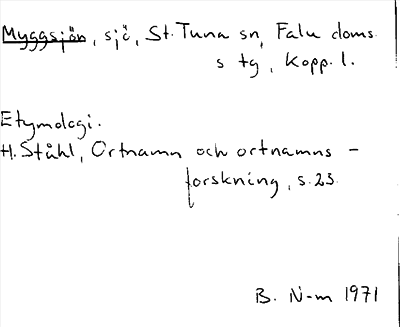 Myggsjön, sjö, St. Tuna sn, Falu doms
s tg, Kopp. l.
Etymologi.
H. Ståhl, Ortnamn och ortnamns-
forskning, s. 23.
B. N-m 1971